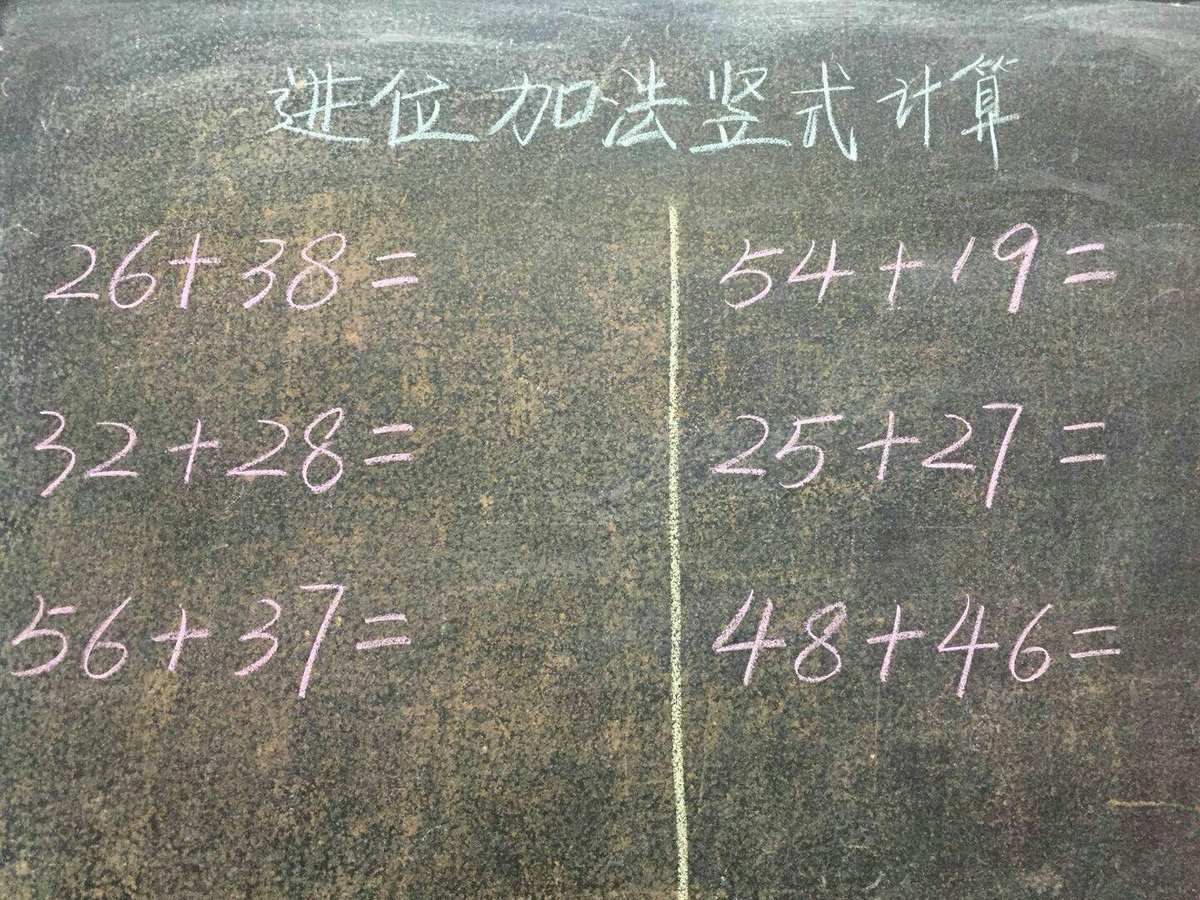 进位加法竖式计算
26+38=
54+19=
32+28=
25+27=
56+37=
48+46=